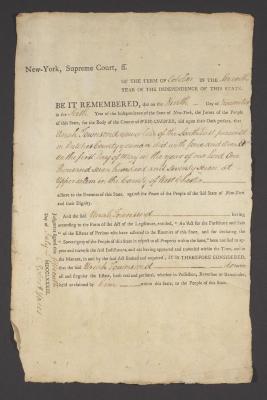 New-York, Supreme Court, ss.
OF THE TERM OF October IN THE Seventh
YEAR OF THE INDEPENDENCE OF THIS STATE.
BE IT REMEMBERED, that on the Day of November
in the Year of the Independence of the State of New-York, the Jurors of the People
of this State, for the Body of the County of WEST-CHESTER, did upon their Oath present, that
Uriah Townsend late of the Southeast precinct
in Dutchess County yeoman did with force and Arms
on the first day of May in the year of our Lord One
thousand seven hundred and seventy seven at
in the County of West Chester
adhere to the Enemies of this State, against the Peace of the People of the said State of New-York
and their Dignity.
And the said Uriah Townsend having
according to the Form of the Act of the Legislature, entitled, "An Act for the Forfeiture and Sale
"of the Estates of Persons who have adhered to the Enemies of this State, and for declaring the
"Sovereignty of the People of this State in respect to all Property within the same," been notified to appear
and traverse the said Indictment, and not having appeared and traversed within the Time, and in
the Manner, in and by the said Act limited and required; IT IS THEREFORE CONSIDERED,
that the said Uriah Townsend do
all and singular the Estate, both real and personal, whether in Possession, Reversion or Remainder,
held or claimed by him within this State, to the People of this State.
Judgment signed this
Day of July
MDCCLXXXIII.